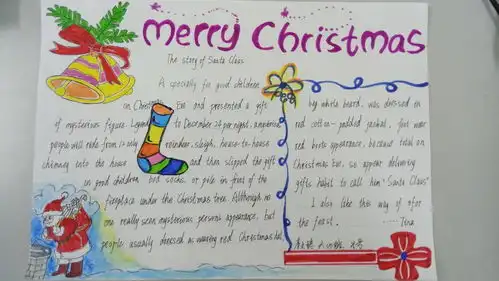 Merry Christmas
The story of Santa Claus
A specially for good children
on Christmas Eve and presented a gift
of mysterious figure. Legend to December 24 per night, a mysterious
people will ride from 12 only reindeer sleigh, house-to-house
chimney into the house and then slipped the gift
in good children bed socks, or pile in front of the
fireplace under the Christmas tree. Although no
one really seen mysterious person's appearance, but
people usually dressed as wearing red Christmas hat,
big white beard, was dressed in
red cotton-padded jacket, foot wear
red boots appearance, because total on
Christmas Eve, so appear delivering
gifts habit to call him "Santa Claus"
I also like this way of
the feast.